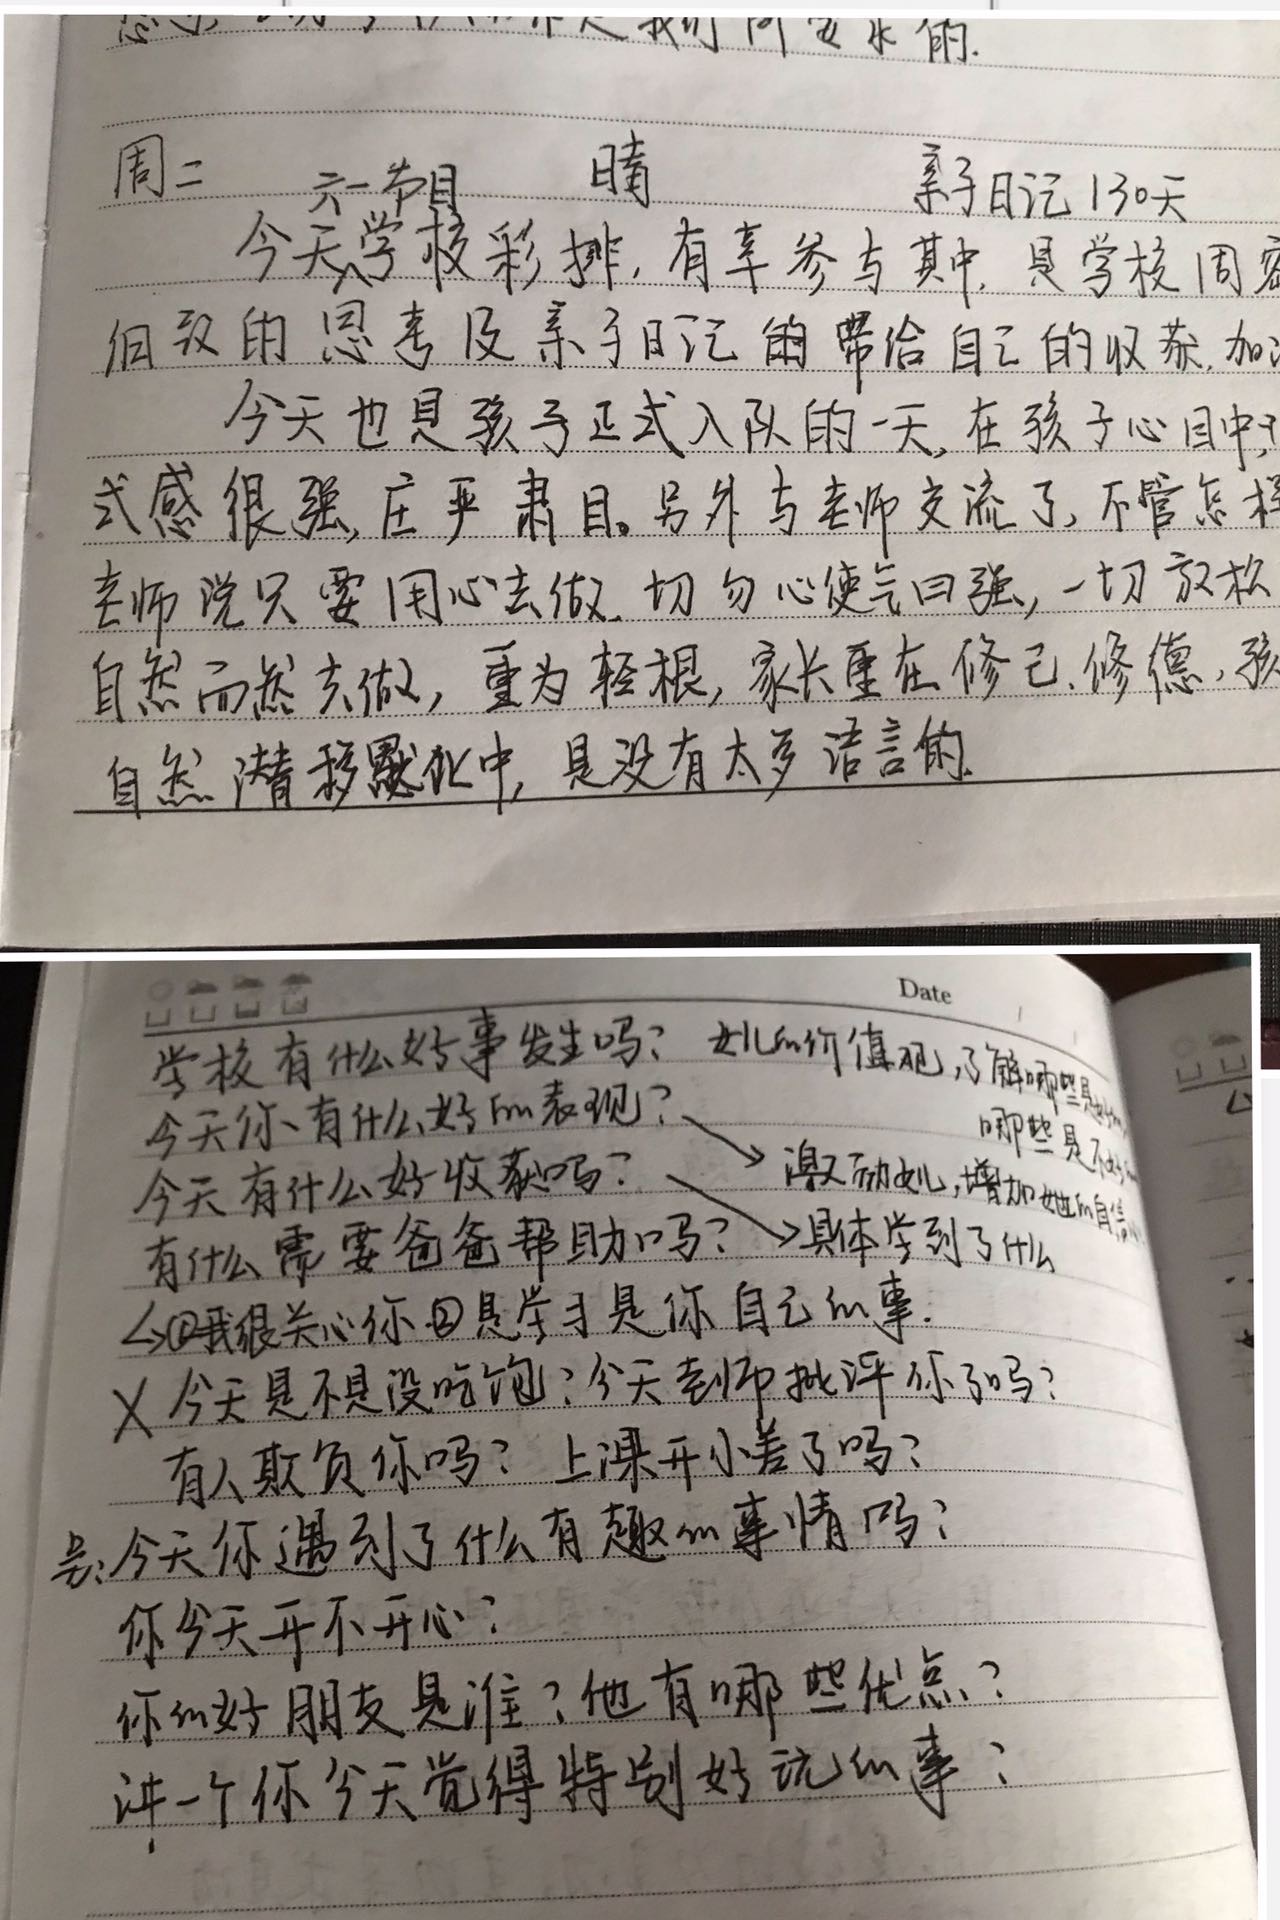 我们所要求的.
周二 晴 亲子日记130天
今天六一节目学校彩排,有幸参与其中,是学校周密
细致的思考及亲子日记的带给自己的收获,加
今天也是孩子正式入队的一天,在孩子心目中,
式感很强,庄严肃目。另外与老师交流了,不管怎样
老师说只要用心去做.切勿心使气曰强,一切放松
自然而然去做,重为轻根,家长重在修己.修德,孩
自然潜移默化中,是没有太多语言的.
Date
学校有什么好事发生吗? 女儿的价值观,了解哪些是好的
哪些是不好的
今天你、有什么好的表现?
激励女儿,增加她的自信心
今天有什么好收获吗?
有什么需要爸爸帮助吗? 具体学到了什么
①我很关心你②是学习是你自己的事.
X 今天是不是没吃饱?今天老师批评你了吗?
有人欺负你吗? 上课开小差了吗?
今天你遇到了什么有趣的事情吗?
你今天开不开心?
你的好朋友是谁?他有哪些优点?
讲一个你今天觉得特别好玩的事?